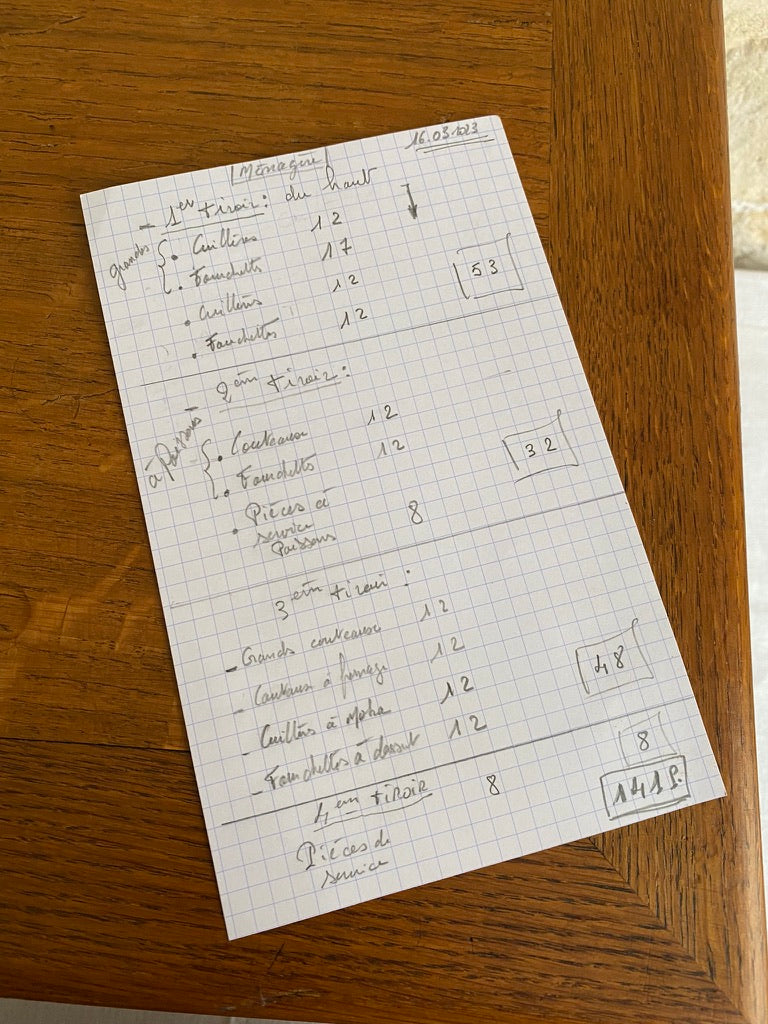 Ménagère
16.03.2023
- 1er tiroir : du haut
grandes
• Cuillères 12
• Fourchettes 17
• Cuillères 12
• Fourchettes 12
53
2ème tiroir :
à Poissons
• Couteaux 12
• Fourchettes 12
• Pièces de
service
Poissons 8
32
3ème tiroir :
- Grands couteaux 12
- Couteaux à fromage 12
- Cuillères à Moka 12
- Fourchettes à dessert 12
48
4ème tiroir 8
8
Pièces de
service
141 P.